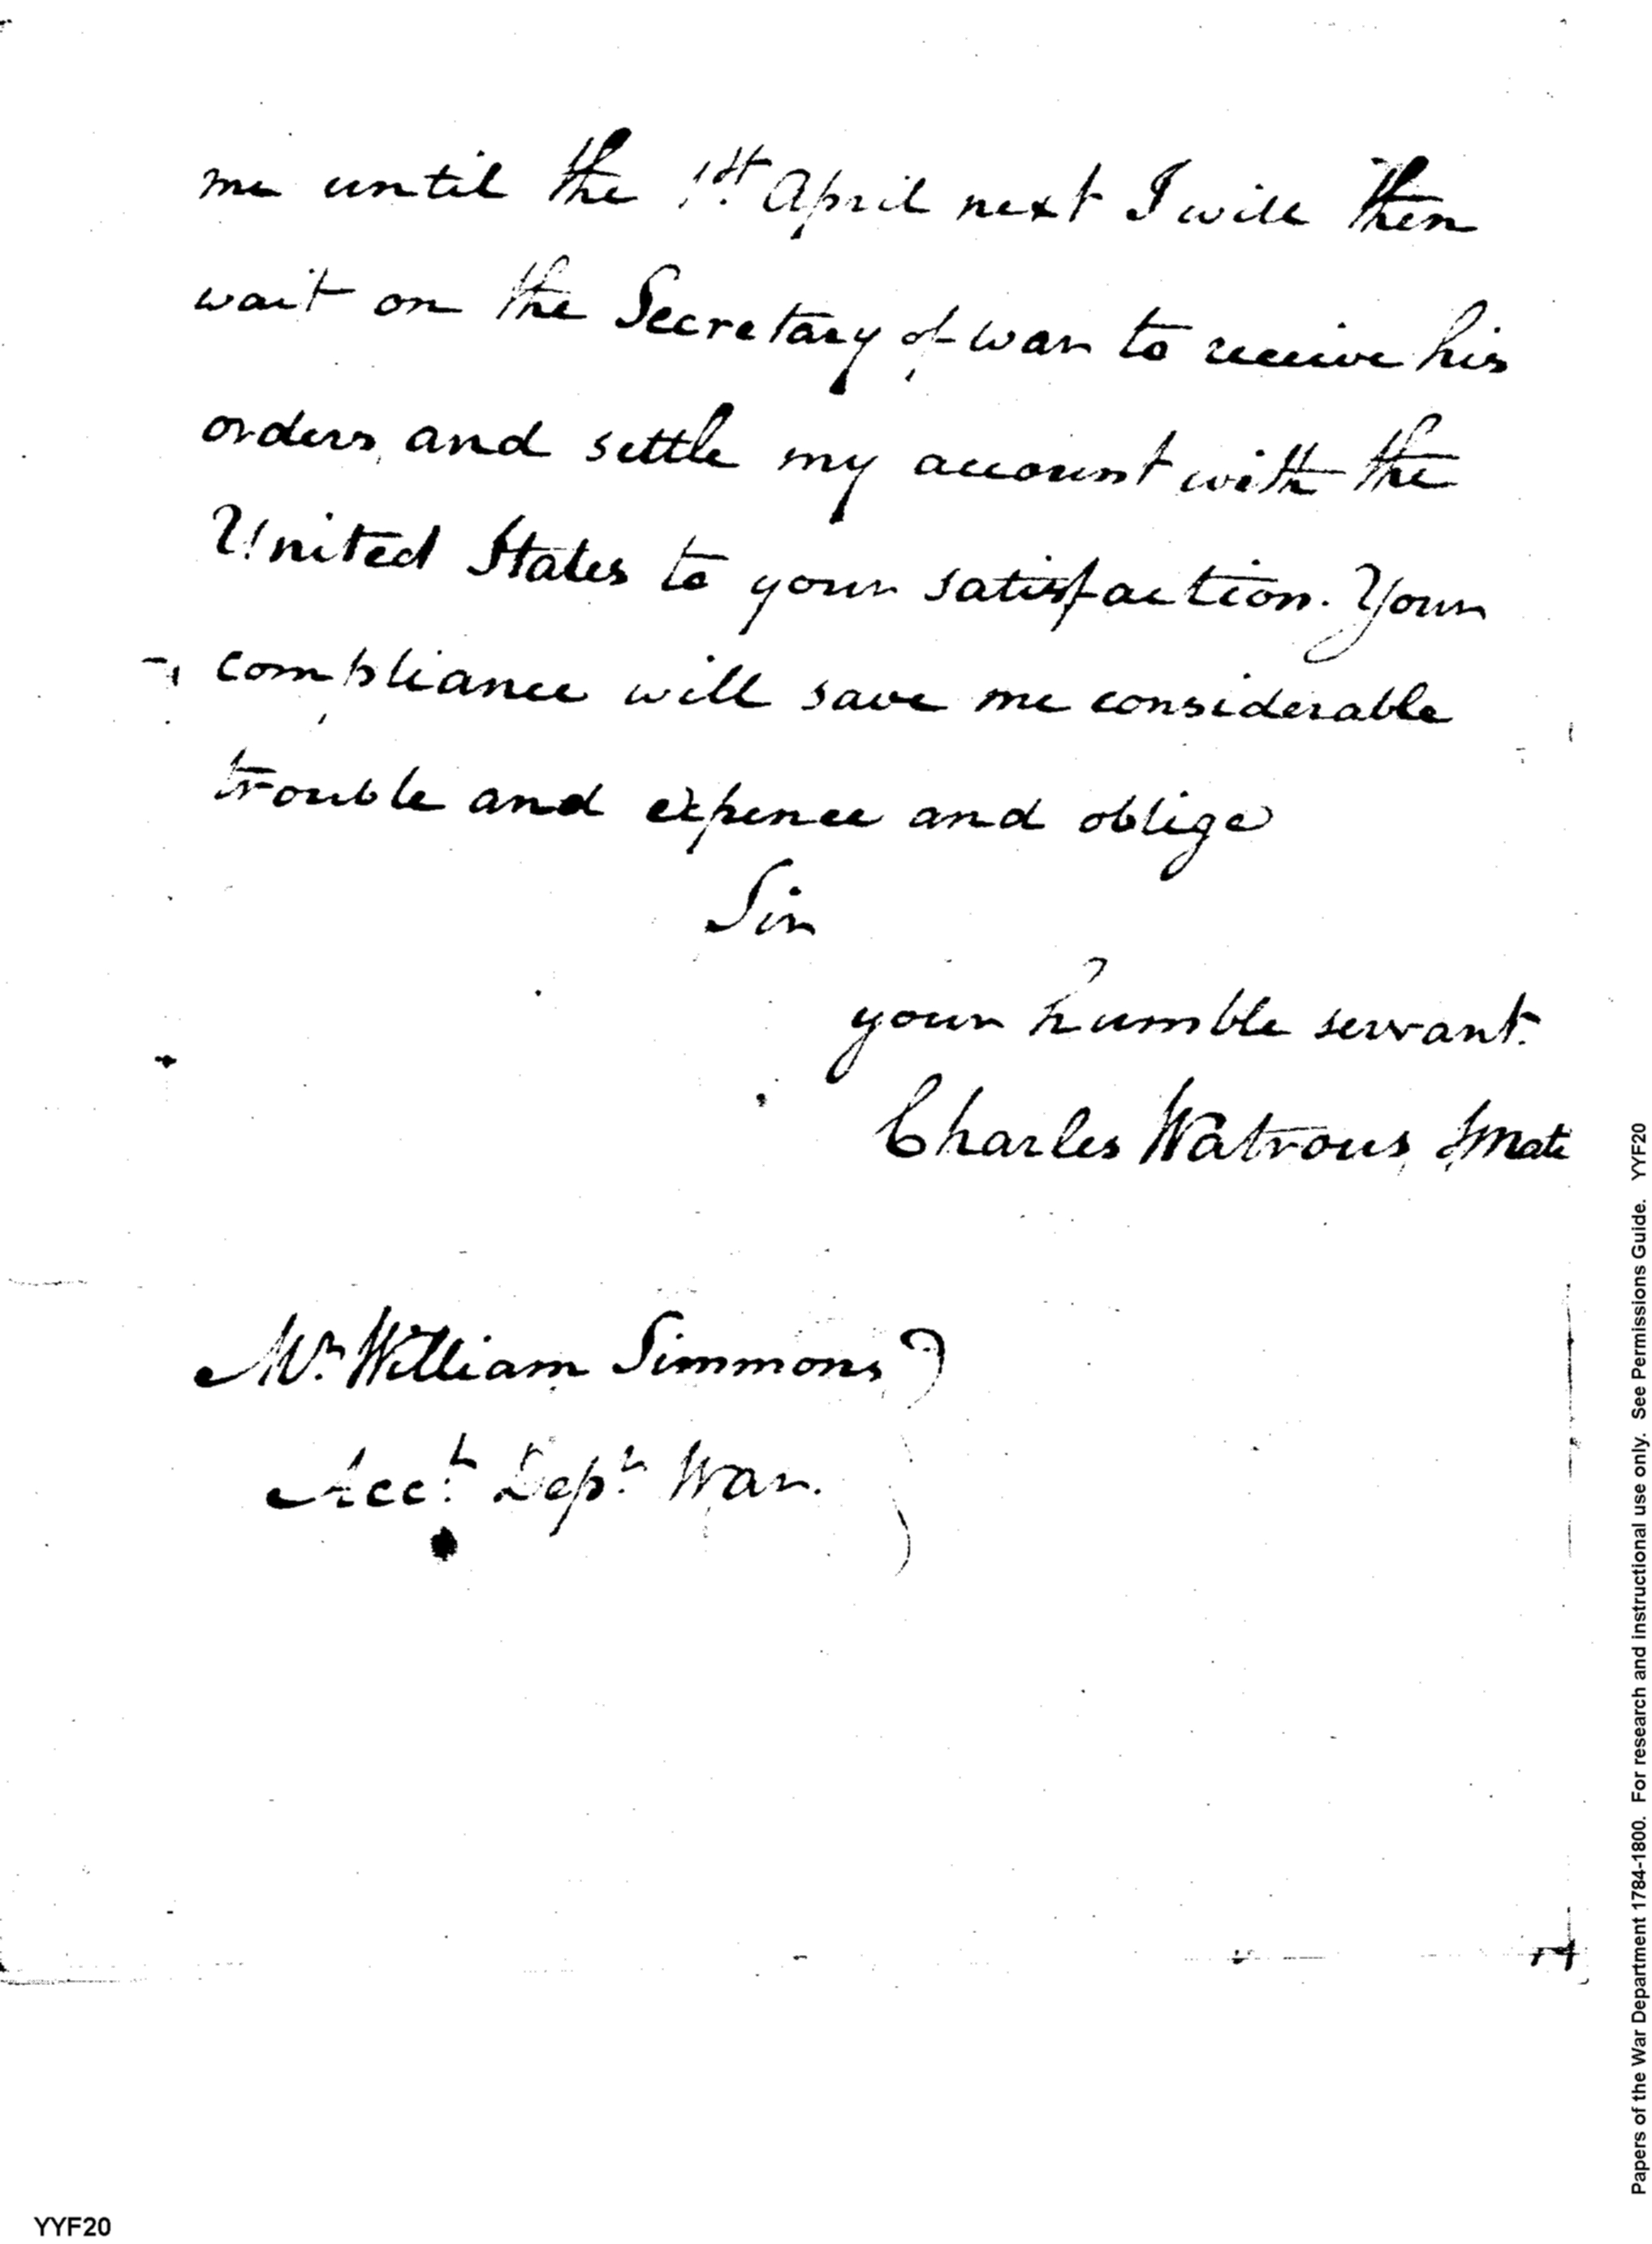 me until the 1st. April next I will then
wait on the Secretary of war to receive his
orders, and settle my account with the
United States to your satisfaction. Your
compliance will save me considerable
trouble and expence and oblige
Sir
your humble servant.
Charles Watrous, SMate
Mr. William Simmons
Acct. Dept. War.
Papers of the War Department 1784-1800. For research and instructional use only. See Permissions Guide. YYF20
YYF20